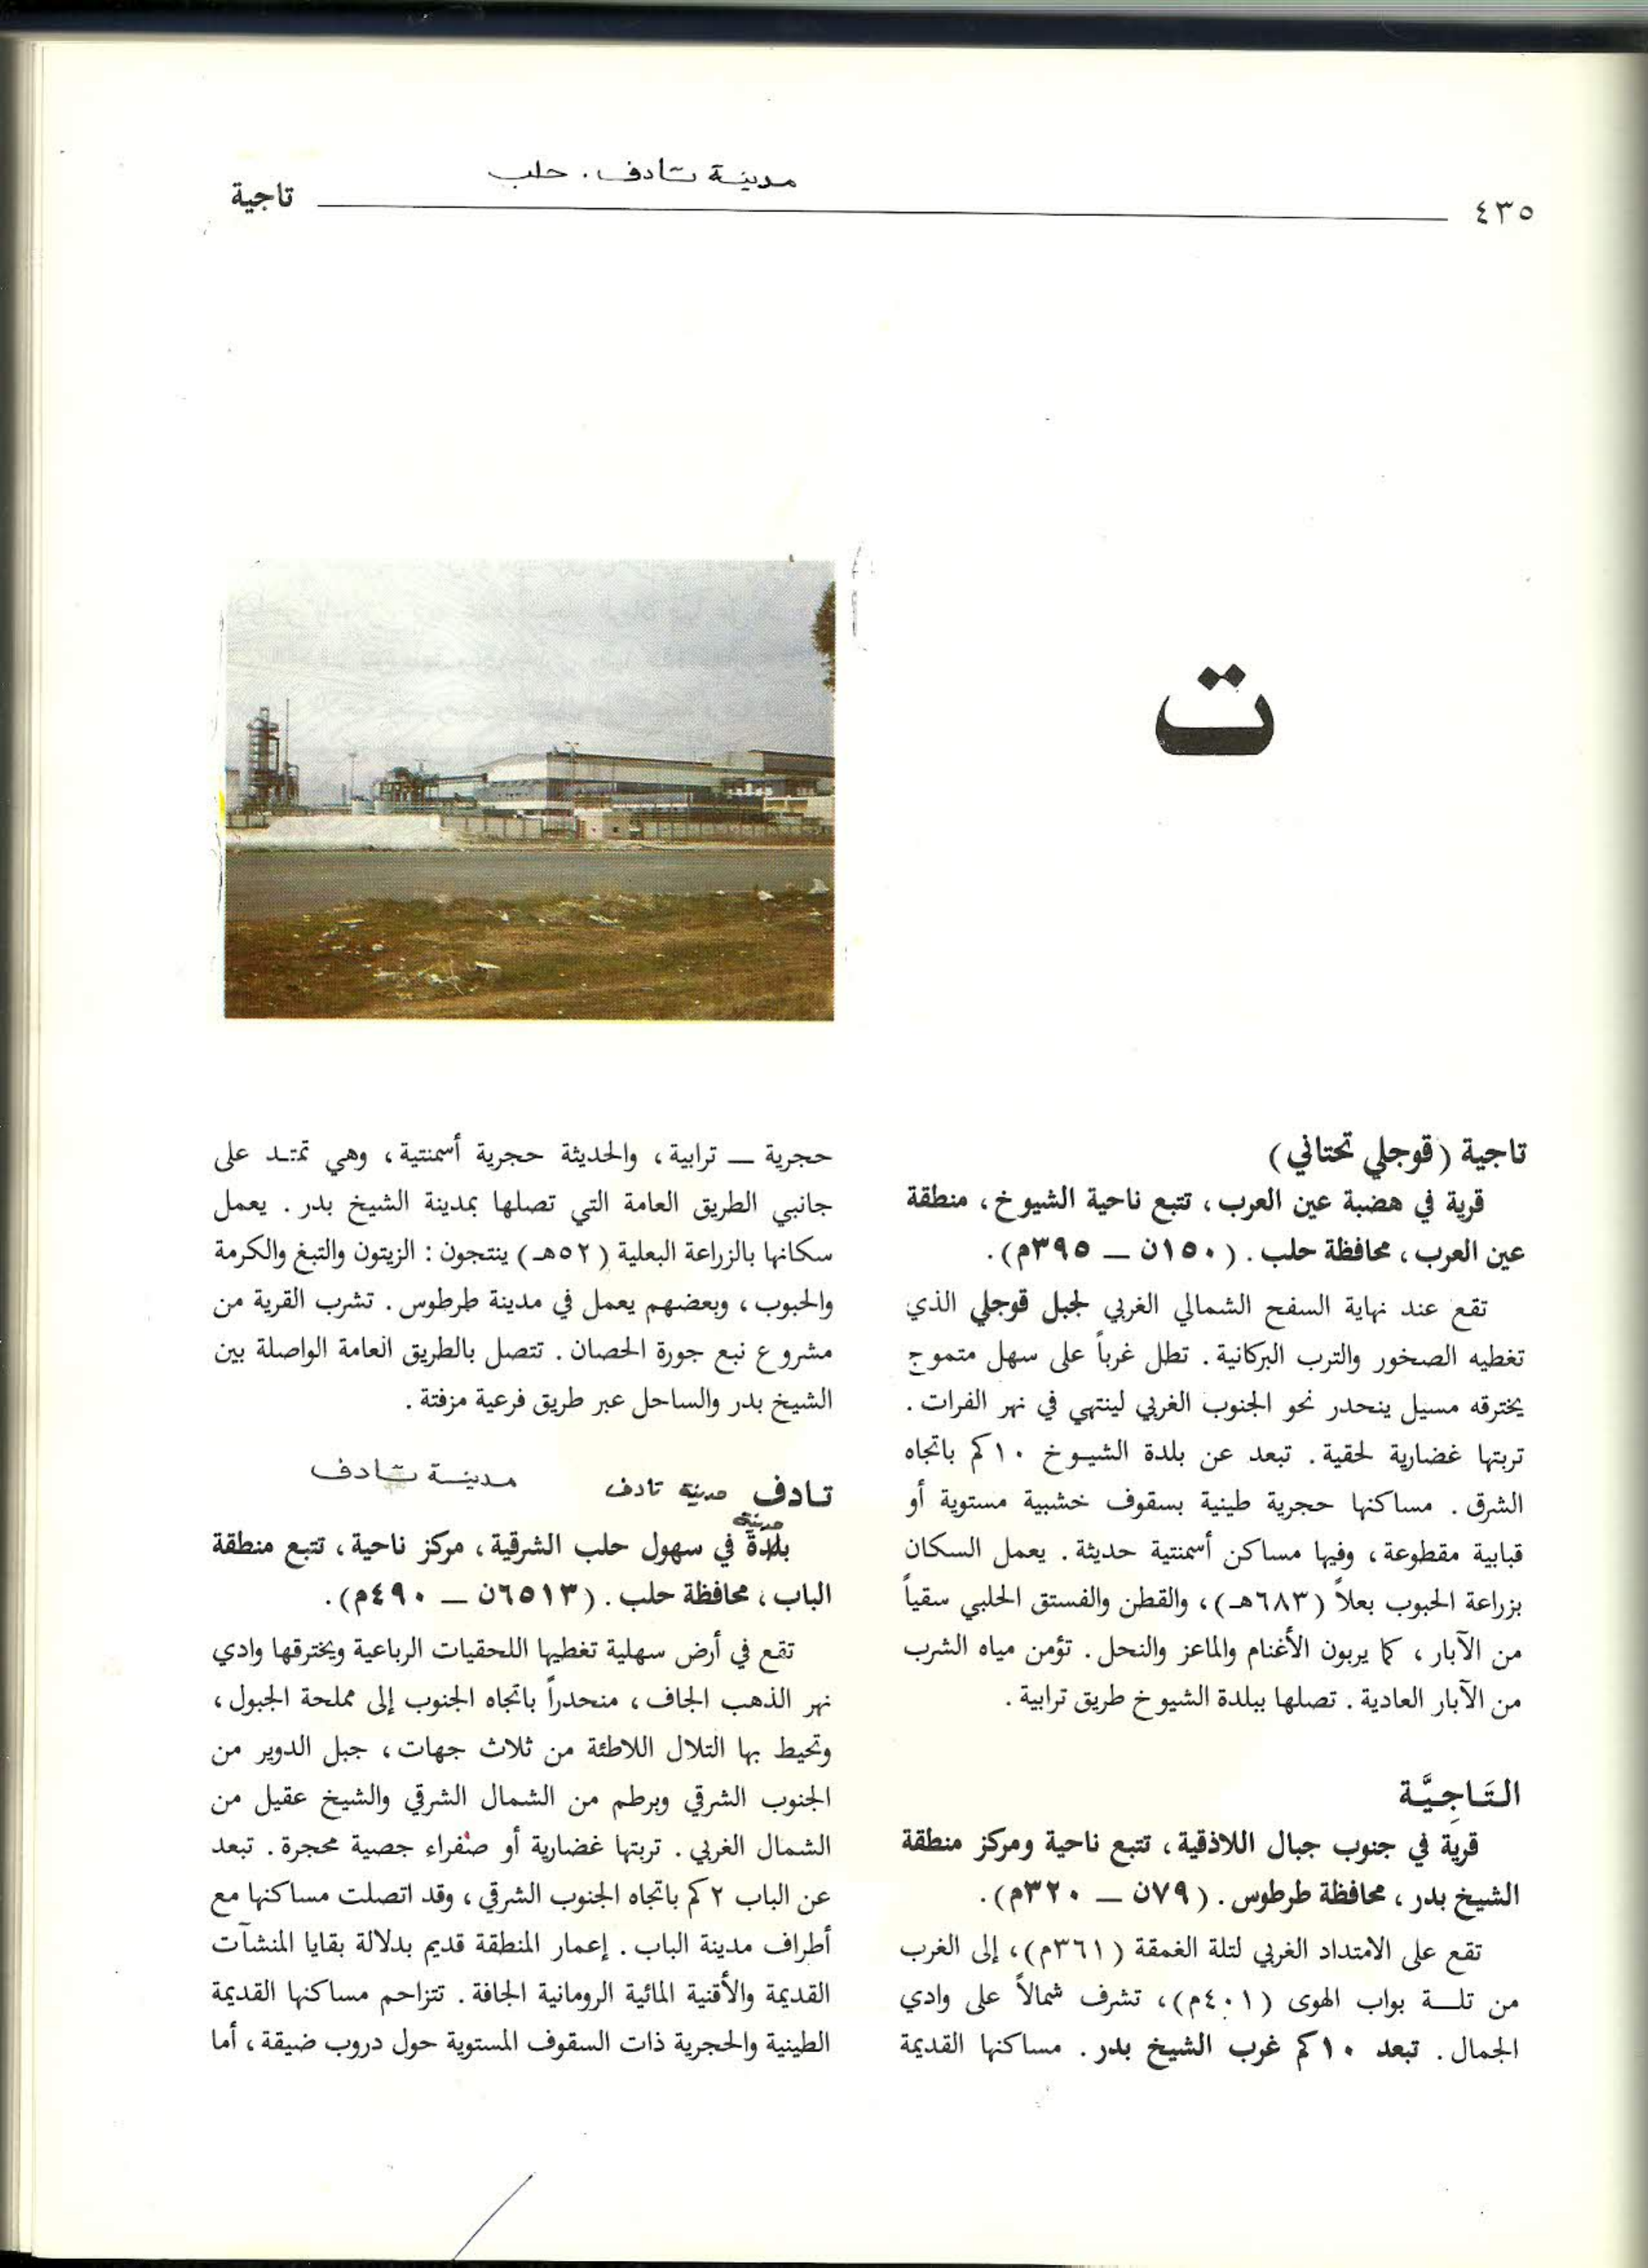 مدينة تادف . حلب
٤٣٥
تاجية
ت
تاجية (قوجلي تحتاني)
قرية في هضبة عين العرب، تتبع ناحية الشيوخ، منطقة
عين العرب، محافظة حلب. (١٥٠ن — ٣٩٥م).
تقع عند نهاية السفح الشمالي الغربي لجبل قوجلي الذي
تغطيه الصخور والترب البركانية. تطل غرباً على سهل متموج
يخترقه مسيل ينحدر نحو الجنوب الغربي لينتهي في نهر الفرات.
تربتها غضارية لحقية. تبعد عن بلدة الشيوخ ١٠كم باتجاه
الشرق. مساكنها حجرية طينية بسقوف خشبية مستوية أو
قبابية مقطوعة، وفيها مساكن أسمنتية حديثة. يعمل السكان
بزراعة الحبوب بعلاً (٦٨٣هـ)، والقطن والفستق الحلبي سقياً
من الآبار، كما يربون الأغنام والماعز والنحل. تؤمن مياه الشرب
من الآبار العادية. تصلها ببلدة الشيوخ طريق ترابية.
التَاجِيَّة
قرية في جنوب جبال اللاذقية، تتبع ناحية ومركز منطقة
الشيخ بدر، محافظة طرطوس. (٧٩ن — ٣٢٠م).
تقع على الامتداد الغربي لتلة الغمقة (٣٦١م)، إلى الغرب
من تلـة بواب الهوى (٤٠١م)، تشرف شمالاً على وادي
الجمال. تبعد ١٠كم غرب الشيخ بدر. مساكنها القديمة
حجرية — ترابية، والحديثة حجرية أسمنتية، وهي تمتد على
جانبي الطريق العامة التي تصلها بمدينة الشيخ بدر. يعمل
سكانها بالزراعة البعلية (٥٢هـ) ينتجون: الزيتون والتبغ والكرمة
والحبوب، وبعضهم يعمل في مدينة طرطوس. تشرب القرية من
مشروع نبع جورة الحصان. تتصل بالطريق العامة الواصلة بين
الشيخ بدر والساحل عبر طريق فرعية مزفتة.
تادف مدينة تادف مدينة تادف
مدينة
بلدة في سهول حلب الشرقية، مركز ناحية، تتبع منطقة
الباب، محافظة حلب. (٦٥١٣ن — ٤٩٠م).
تقع في أرض سهلية تغطيها اللحقيات الرباعية ويخترقها وادي
نهر الذهب الجاف، منحدراً باتجاه الجنوب إلى مملحة الجبول،
وتحيط بها التلال اللاطئة من ثلاث جهات، جبل الدوير من
الجنوب الشرقي وبرطم من الشمال الشرقي والشيخ عقيل من
الشمال الغربي. تربتها غضارية أو صفراء جصية محجرة. تبعد
عن الباب ٢كم باتجاه الجنوب الشرقي، وقد اتصلت مساكنها مع
أطراف مدينة الباب. إعمار المنطقة قديم بدلالة بقايا المنشآت
القديمة والأقنية المائية الرومانية الجافة. تتزاحم مساكنها القديمة
الطينية والحجرية ذات السقوف المستوية حول دروب ضيقة، أما